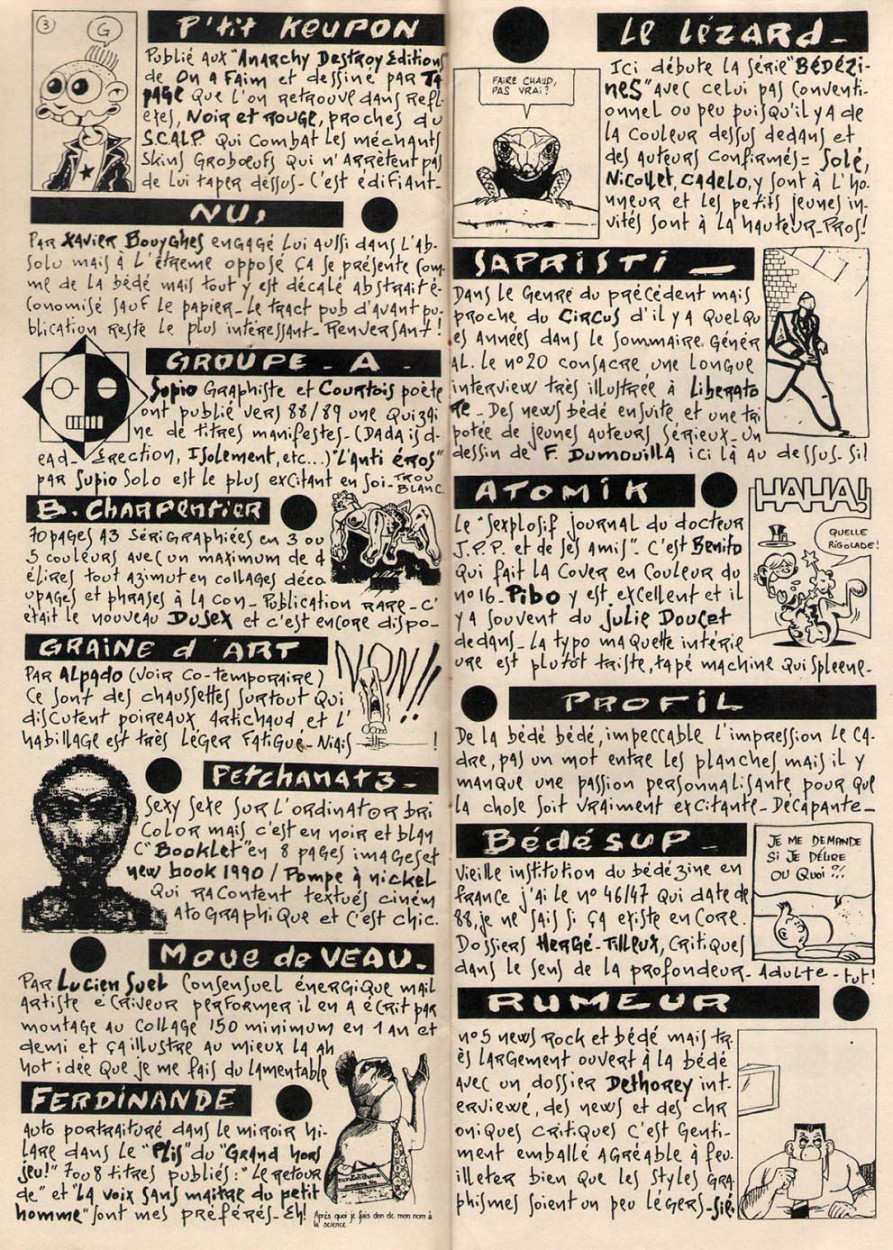 3
G
P'tit KEUPON
Publié aux "Anarchy Destroy Editions
de On a Faim et dessiné par TA
PAGE que l'on retrouve dans Refl-
exes, Noir et Rouge, proches du
S.C.A.L.P. qui combat les méchants
Skins Grobœufs qui n'arrêtent pas
de lui taper dessus- C'est édifiant-
NU,
Par Xavier Bouyghes engagé lui aussi dans l'ab-
solu mais à l'étreme opposé ça se présente com-
me de la bédé mais tout y est décalé abstraité-
conomisé sauf le papier- le tract pub d'avant pu-
blication reste le plus intéressant- Renversant!
GROUPE - A -
Supio Graphiste et Courtois poète
ont publié vers 88/89 une quizai
ne de titres manifestes- (Dada is d-
ead- Erection, Isolement, etc...) "L'anti éros"
par Supio Solo est le plus excitant en soi- TROU
BLANC.
B. Charpentier
70 pages A3 sérigraphiées en 3 ou
5 couleurs avec un maximum de d
élires tout azimut en collages déco
upages et phrases à la con- Publication rare- c'
était le nouveau DUSEX et c'est encore dispo-
GRAINE d'ART
NON!!
Par Alpado (voir co-temporaire)
Ce sont des chaussettes surtout qui
discutent poireaux, artichaud et l'
habillage est très léger Fatigué- Niais !
Petchanatz-
Sexy sexe sur l'ordinator bri
color mais c'est en noir et blan
c "Booklet" en 8 pages images et
new book 1990 / Pompe à nickel
qui racontent textues ciném
atographique et c'est chic.
Moue de VEAU-
Par Lucien Suel consensuel énergique mail
artiste écriveur performer il en a écrit par
montage au collage 150 minimum en 1 an et
demi et ça illustre au mieux la ah
hot idée que je me fais du lamentable
FERDINANDE
Auto portraituré dans le miroir hi-
lare dans le "Plis" du "Grand hors
jeu!" 7 ou 8 titres publiés: "Le retour
de" et "La voix sans maître du petit
homme" sont mes préférés- Eh!
Après quoi je fais don de mon nom à
la science
LE LÉZARD-
FAIRE CHAUD,
PAS VRAI?
Ici débute la série "BÉDÉZI-
NES" avec celui pas conventi-
onnel ou peu puisqu'il y a de
la couleur dessus dedans et
des auteurs confirmés= Solé,
Nicollet, Cadelo, y sont à l'ho-
nneur et les petits jeunes in-
vités sont à la hauteur- Pros!
SAPRISTI -
Dans le genre du précédent mais
proche du CIRCUS d'il y a quelqu
es années dans le sommaire géner
al. le n°20 consacre une longue
interview très illustrée à Liberato
re- Des news bédé ensuite et une tri
potée de jeunes auteurs sérieux- Un
dessin de F. Dumouilla ici là au dessus- Si!
ATOMIK
HAHA!
QUELLE
RIGOLADE!
Le "Sexplosif journal du docteur
J.P.P. et de ses amis". C'est Benito
qui fait la cover en couleur du
n°16- Pibo y est excellent et il
y a souvent du Julie Doucet
dedans- La typo maquette intérie
ure est plutôt triste, tapé machine qui spleene-
PROFIL
De la bédé bédé, impeccable l'impression le ca-
dre, pas un mot entre les planches mais il y
manque une passion personnalisante pour que
la chose soit vraiment excitante- Décapante-
Bédésup-
JE ME DEMANDE
SI JE DÉLIRE
OU QUOI ?!
Vieille institution du bédézine en
France j'ai le n° 46/47 qui date de
88, je ne sais si ça existe encore.
Dossiers Hergé- Tilleux, critiques
dans le sens de la profondeur- Adulte- tut!
RUMEUR
n°5 news Rock et bédé mais tr-
ès largement ouvert à la bédé
avec un dossier Dethorey int-
erviewé, des news et des chr
oniques critiques c'est genti-
ment emballé agréable à feu-
illeter bien que les styles gra
phismes soient un peu légers- sié.